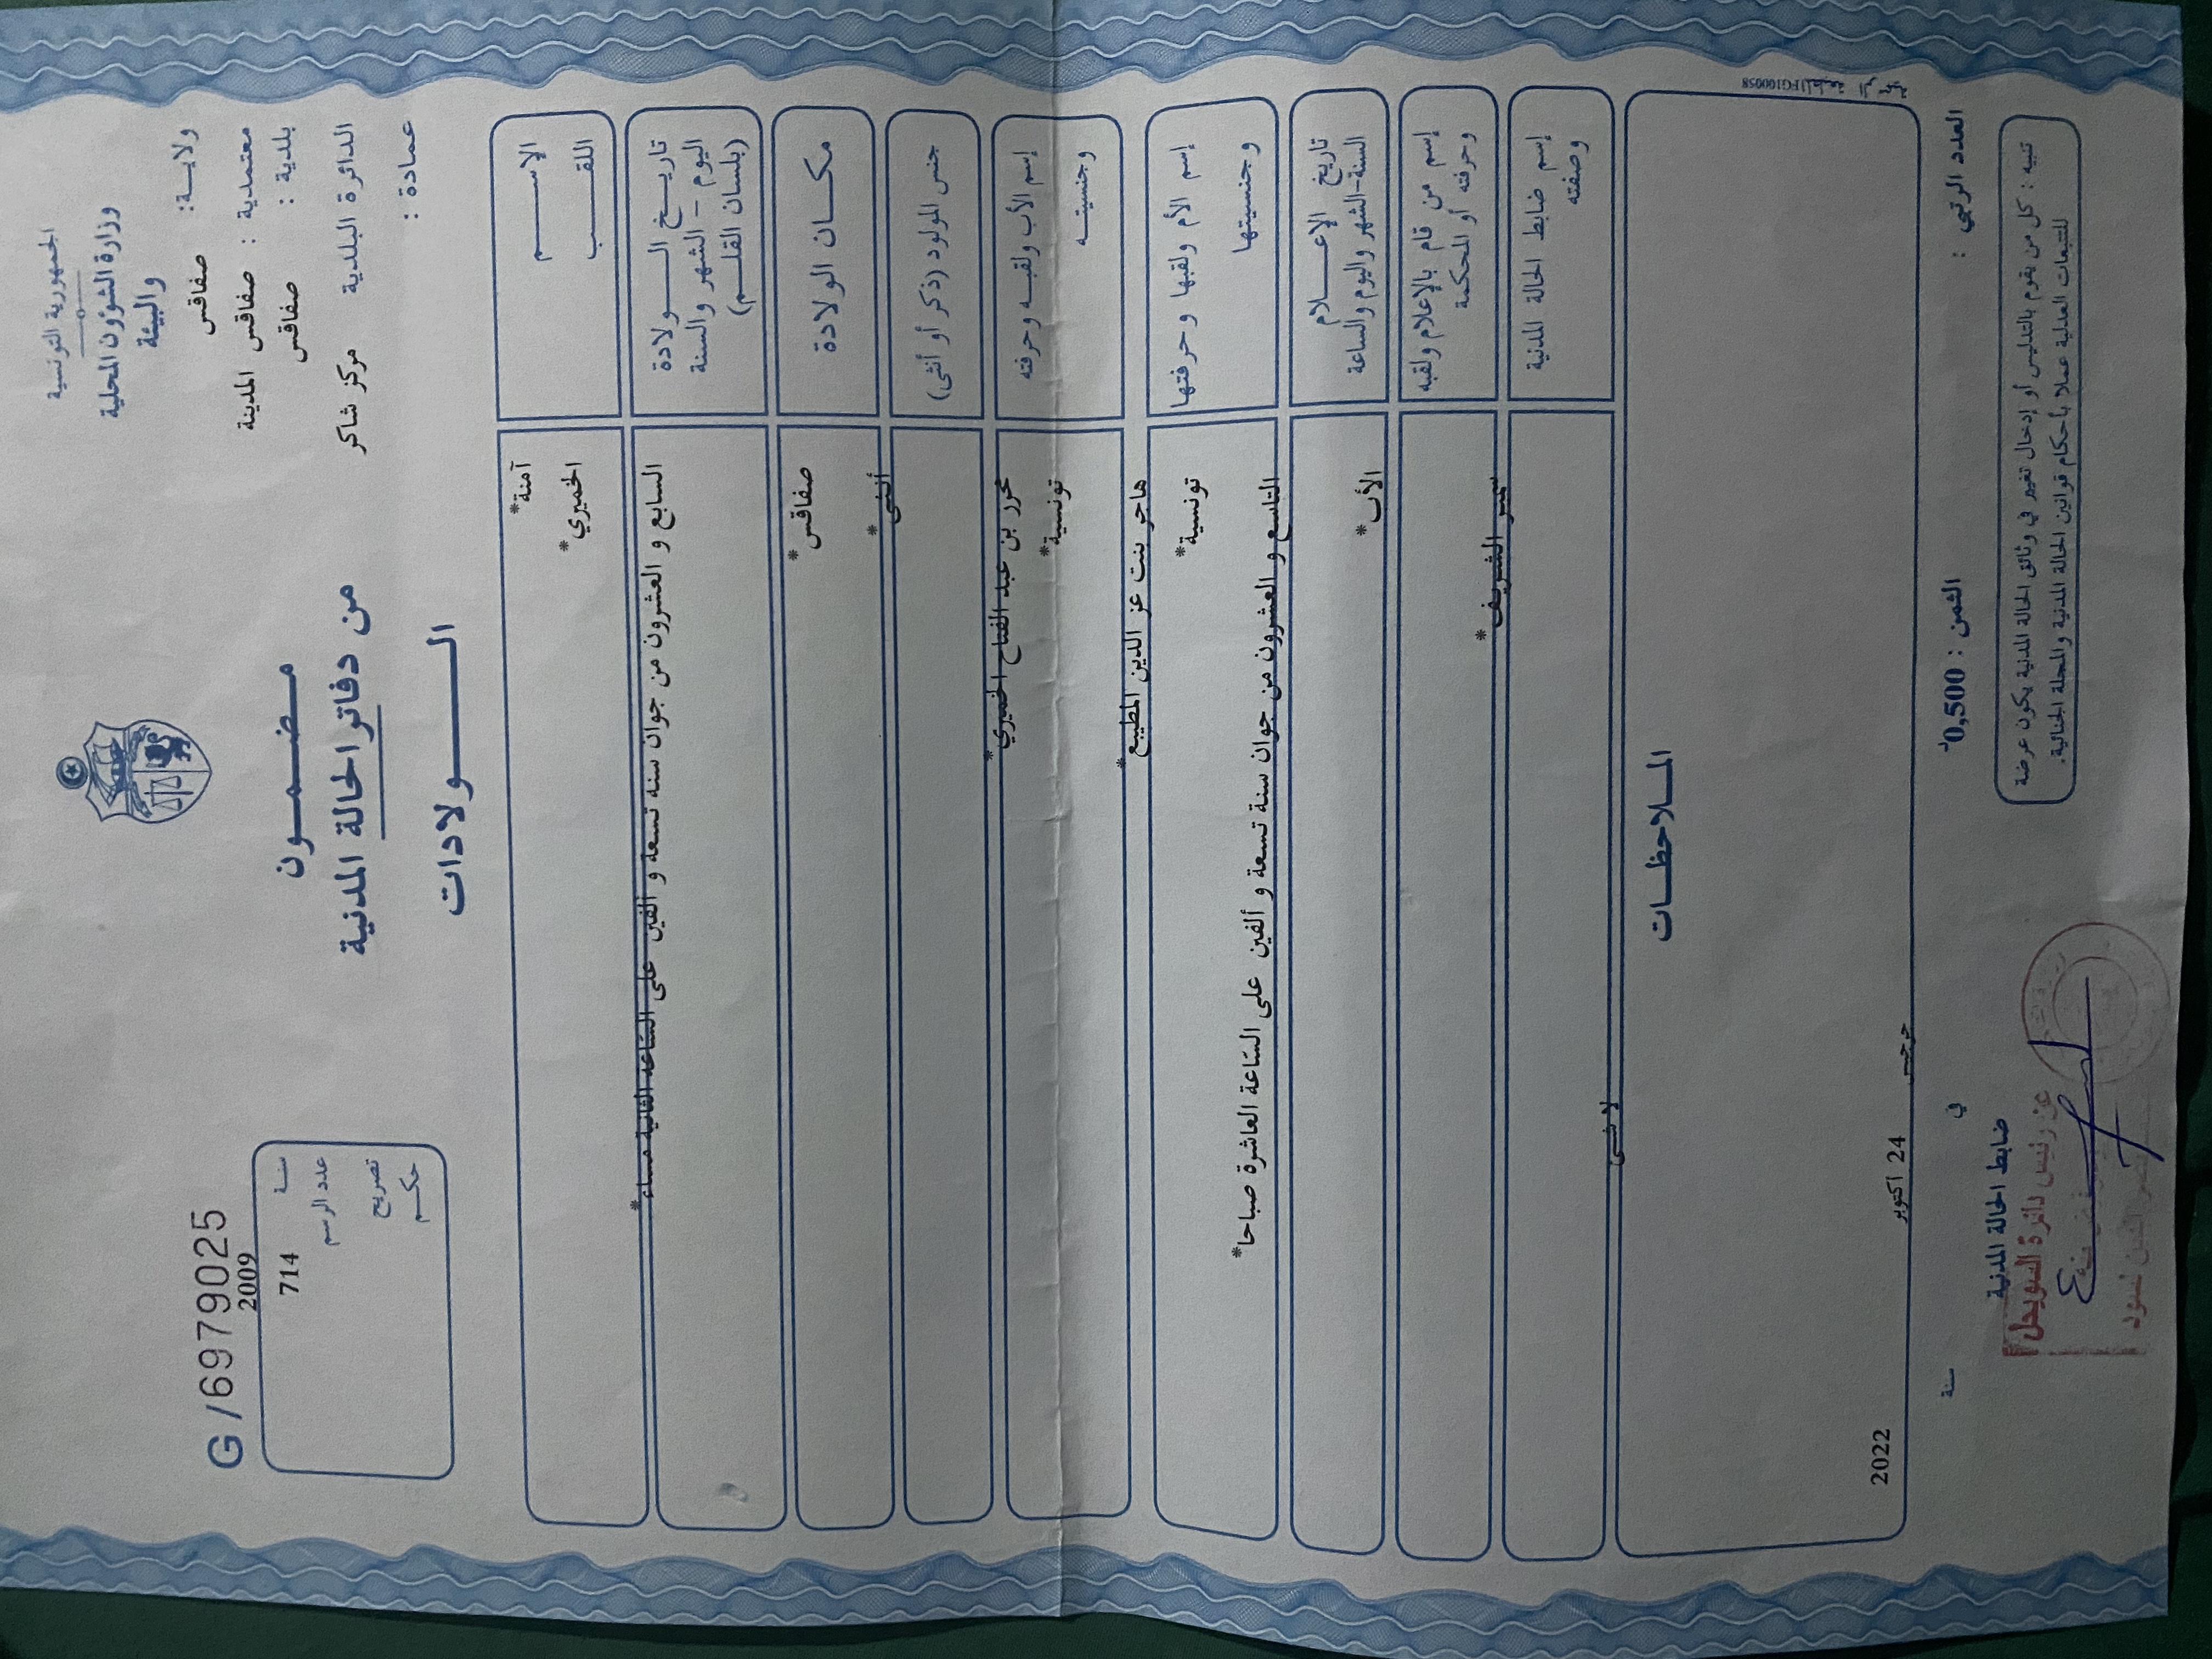 الجمهورية التونسية
وزارة الشؤون المحلية
والبيئة
ولايـة: صفاقس
معتمدية : صفاقس المدينة
بلدية : صفاقس
الدائرة البلدية مركز شاكر
عمادة :
مـضـمـون
من دفاتر الحالة المدنية
الـولادات
G/6979025
2009
سنة
714
عدد الرسم
تصريح
حكم
الإسـم
آمنة*
اللقب
الخميري*
تاريـخ الـولادة
اليوم - الشهر والسنة
(بلسان القلـم)
السابع و العشرون من جوان سنة تسعة و ألفين على الساعة الثانية مساء*
مكـان الولادة
صفاقس*
جنس المولود (ذكر أو أنثى)
أنثى*
إسم الأب ولقبـه وحرفته
محرز بن عبد الفتاح الخميري*
وجنسيتـه
تونسية*
إسم الأم ولقبها وحرفتها
هاجر بنت عز الدين المطيبع*
وجنسيتها
تونسية*
تاريخ الإعـلام
السنة-الشهر واليوم والساعة
التاسع و العشرون من جوان سنة تسعة و ألفين على الساعة العاشرة صباحا*
إسم من قام بالإعلام ولقبه
وحرفته أو المحكمة
الأب*
إسم ضابط الحالة المدنية
وصفته
سمير الشريف*
المـلاحظـات
لا شئ
جرجيس
24 اكتوبر
2022
في
سنة
العدد الرتبي :
الثمن : 0,500د
ضابط الحالة المدنية
عن رئيس دائرة السويحل
تنبيه : كل من يقوم بالتدليس أو إدخال تغيير في وثائق الحالة المدنية يكون عرضة
للتتبعات العدلية عملا بأحكام قوانين الحالة المدنية والمجلة الجنائية.